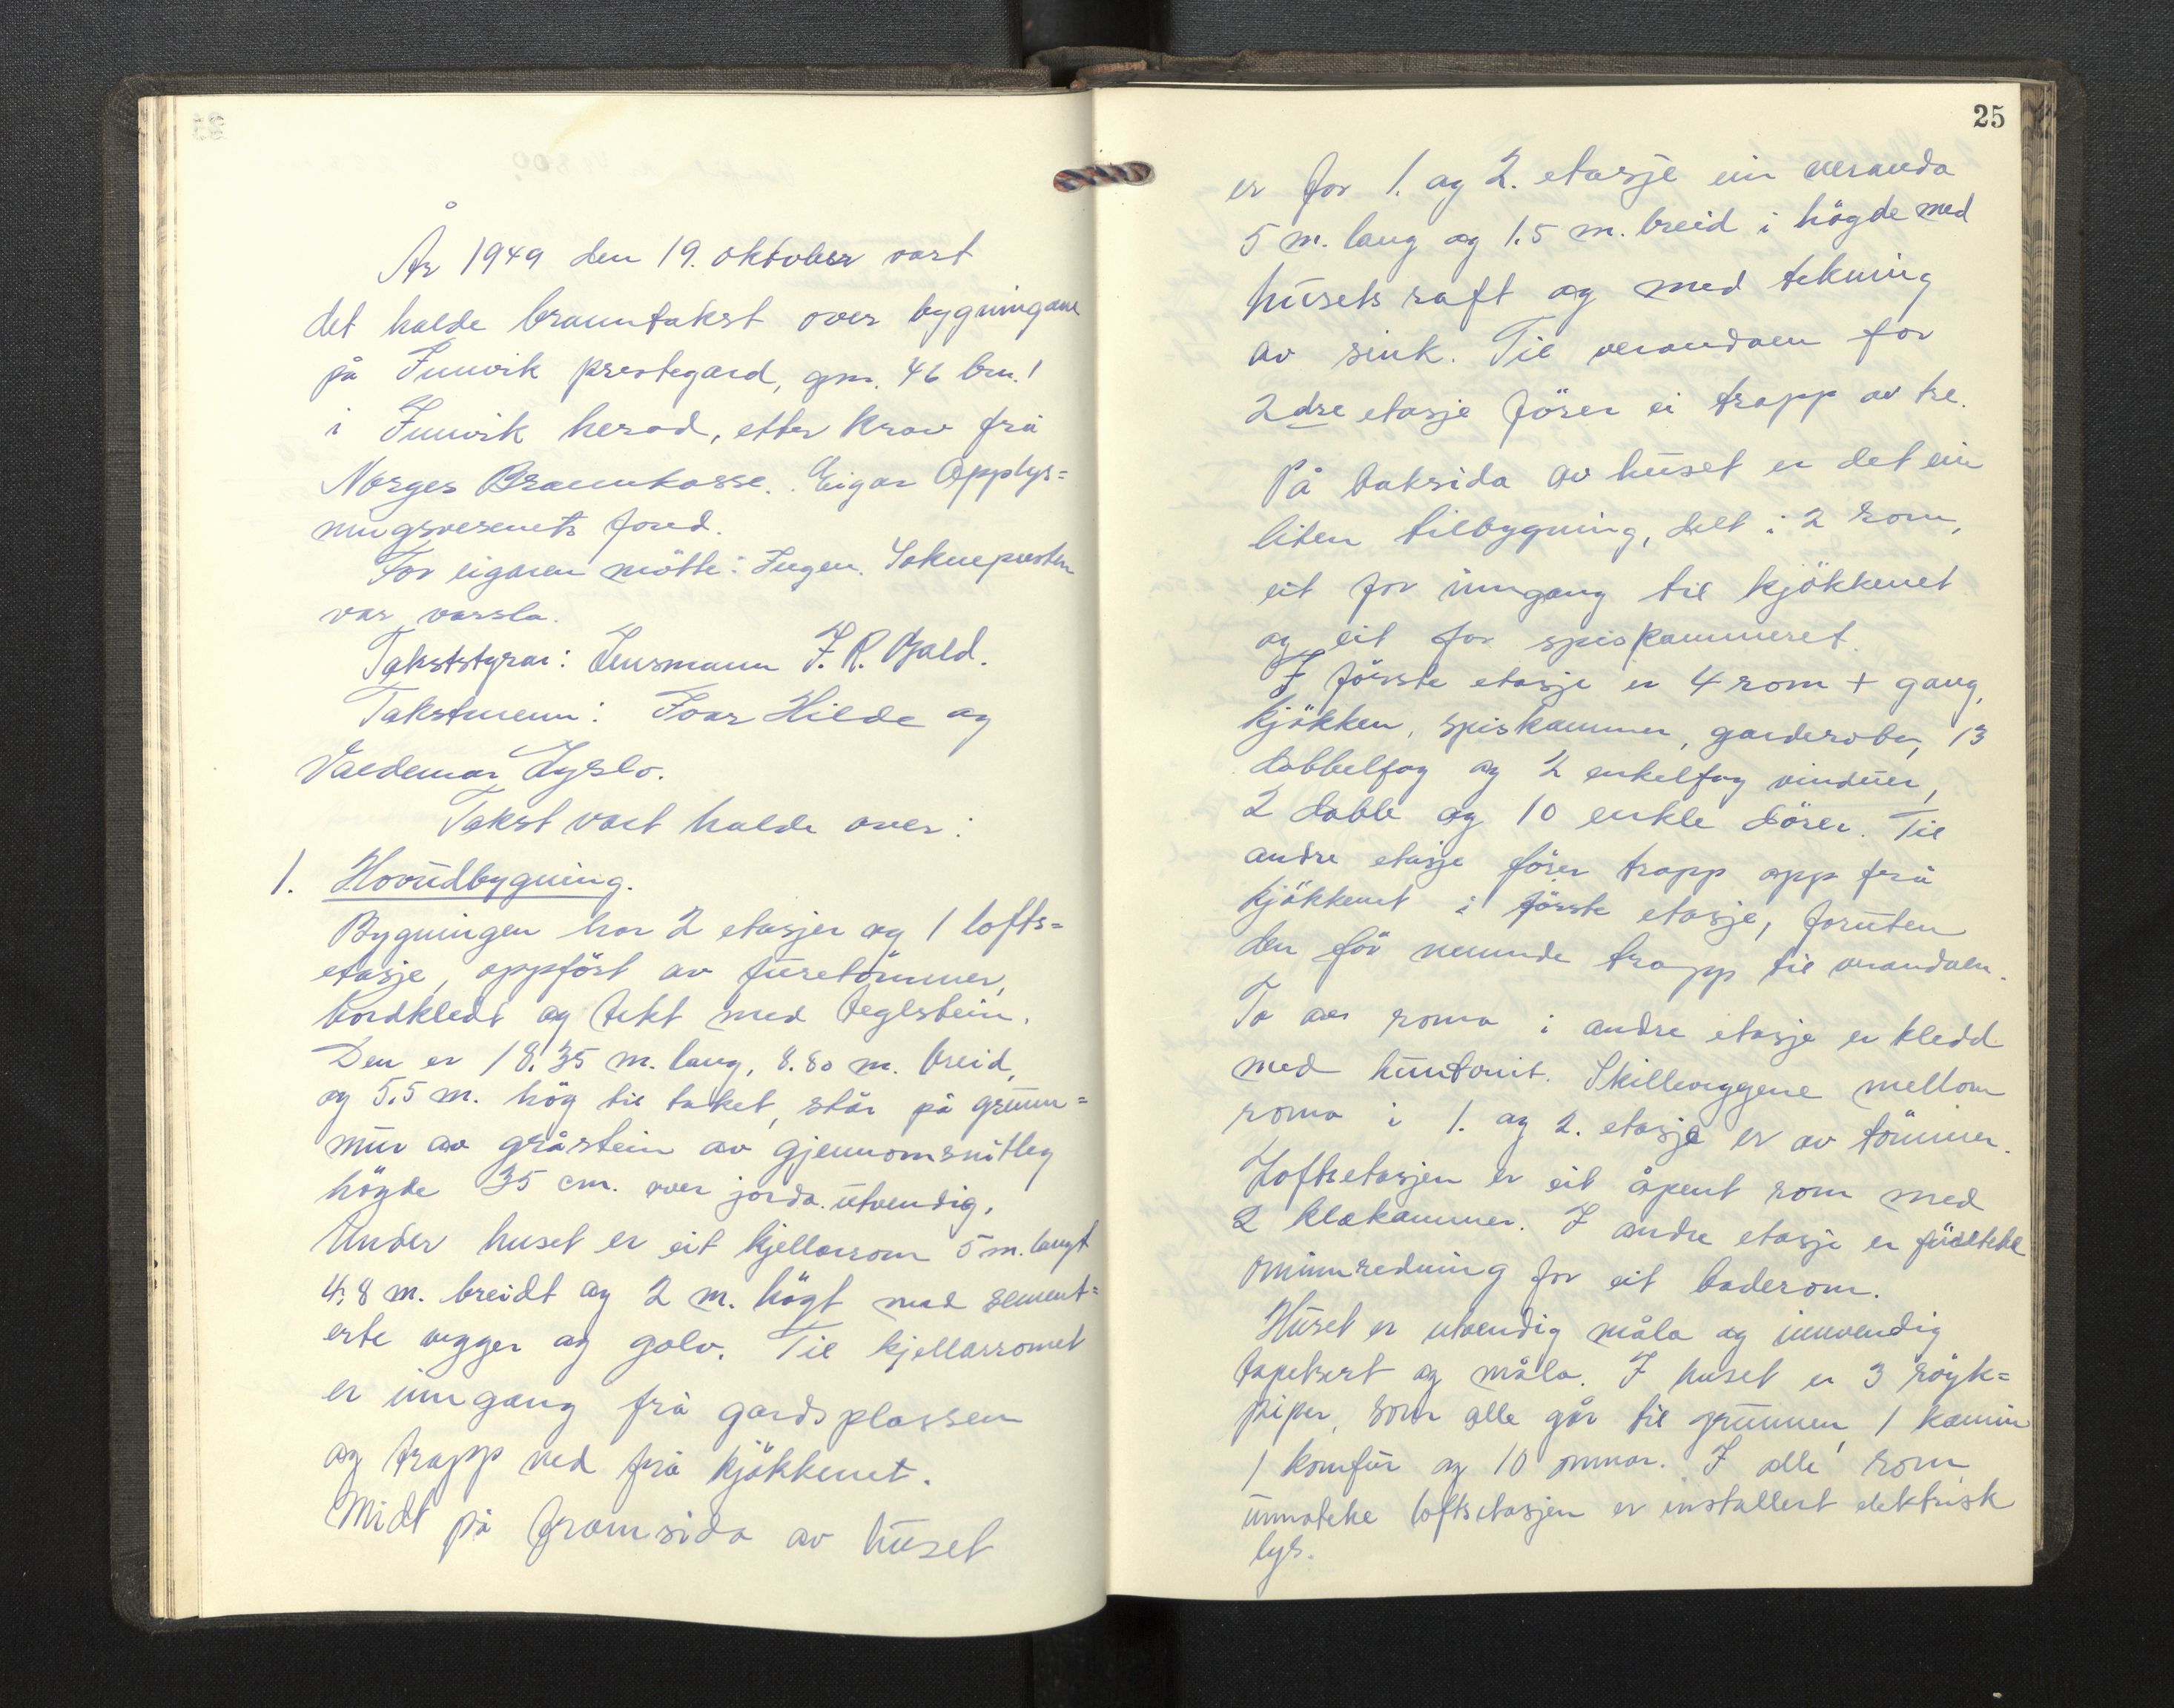 År 1949 den 19. oktober vart
det halde branntakst over bygningane
på Innvik prestegard, gnr. 46 bnr. 1
i Innvik herad, etter krav frå
Norges Brannkasse. Eigar Opplys=
ningsvesenets fond.
For eigaren møtte: Ingen. Soknepresten
var varsla.
Takststyrar: Lensmann J. R. Bald.
Takstmenn: Ivar Hilde og
Valdemar Lyslo.
Takst vart halde over:
1. Hovudbygning.
Bygningen har 2 etasjer og 1 lofts=
etasje, oppfört av furetömmer,
bordkledt og tekt med teglstein.
Den er 18.35 m. lang, 8.80 m. breid,
og 5.5 m. hög til taket, står på grunn=
mur av gråstein av gjennomsnitleg
högde 35 cm. over jorda utvendig.
Under huset er eit kjellarrom 5 m. langt
4,8 m. breidt og 2 m. högt med sement=
erte vegger og golv. Til kjellarromet
er inngang frå gardsplassen
og trapp ned frå kjökkenet.
Midt på framsida av huset
25
er for 1. og 2. etasje ein veranda
5 m. lang og 1.5 m. breid i högde med
husets raft og med tekning
av sink. Til verandaen for
2dre etasje förer ei trapp av tre.
På baksida av huset er det ein
liten tilbygning, delt i 2 rom,
eit for inngang til kjökkenet
og eit for spiskammeret.
I förste etasje er 4 rom + gang,
kjökken, spiskammer, garderober, 13
dobbelfag og 2 enkelfag vinduer,
2 doble og 10 enkle dörer. Til
andre etasje förer trapp opp frå
kjökkenet i förste etasje, foruten
den för nemnde trapp til verandaen.
To av roma i andre etasje er kledd
med huntonit. Skilleveggene mellom
roma i 1. og 2. etasje er av tömmer.
Loftsetasjen er eit åpent rom med
2 klekammer. I andre etasje er
ominnredning for eit baderom.
Huset er utvendig måla og innvendig
tapetsert og måla. I huset er 3 röyk=
piper, som alle går til grunnen, 1 kamin
1 komfur og 10 omnar. I alle rom
unnateke loftsetasjen er installert elektrisk
lys.